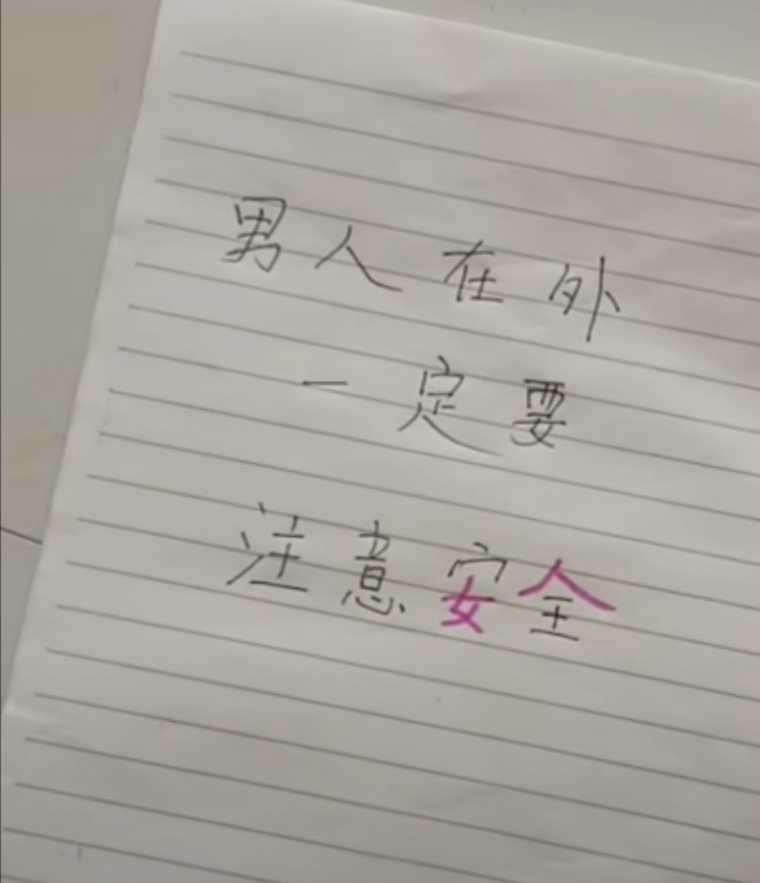 男人在外
一定要
注意安全